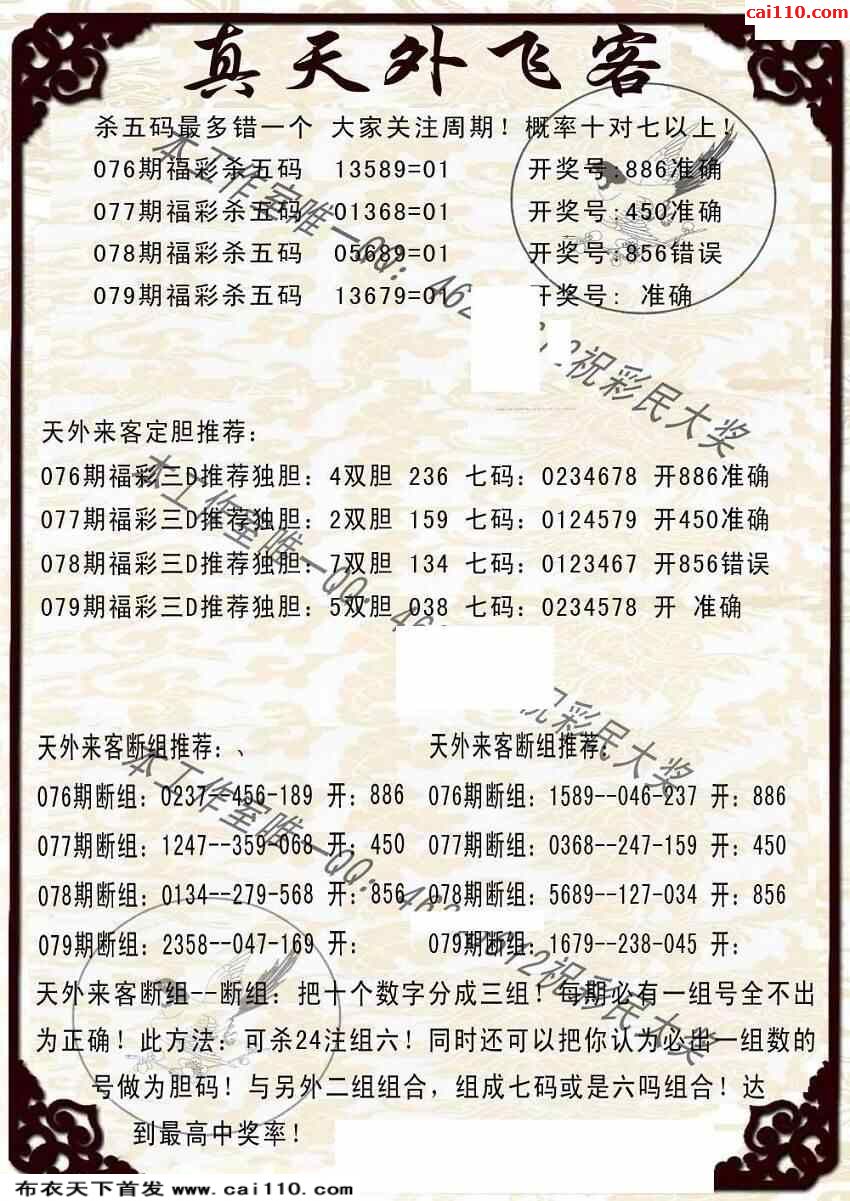 cai110.com
真天外飞客
杀五码最多错一个 大家关注周期！概率十对七以上！
076期福彩杀五码 13589=01 开奖号:886准确
077期福彩杀五码 01368=01 开奖号:450准确
078期福彩杀五码 05689=01 开奖号:856错误
079期福彩杀五码 13679=01 开奖号: 准确
天外来客定胆推荐：
076期福彩三D推荐独胆：4双胆 236 七码：0234678 开886准确
077期福彩三D推荐独胆：2双胆 159 七码：0124579 开450准确
078期福彩三D推荐独胆：7双胆 134 七码：0123467 开856错误
079期福彩三D推荐独胆：5双胆 038 七码：0234578 开 准确
天外来客断组推荐：、 天外来客断组推荐：
076期断组：0237--456-189 开：886 076期断组：1589--046-237 开：886
077期断组：1247--359-068 开：450 077期断组：0368--247-159 开：450
078期断组：0134--279-568 开：856 078期断组：5689--127-034 开：856
079期断组：2358--047-169 开： 079期断组：1679--238-045 开：
天外来客断组--断组：把十个数字分成三组！每期必有一组号全不出
为正确！此方法：可杀24注组六！同时还可以把你认为必出一组数的
号做为胆码！与另外二组组合，组成七码或是六吗组合！达
到最高中奖率！
本工作室唯一QQ：462
祝彩民大奖
本工作室唯一QQ：46
祝彩民大奖
本工作室唯一QQ：46
612祝彩民大奖
布衣天下首发 www.cai110.com